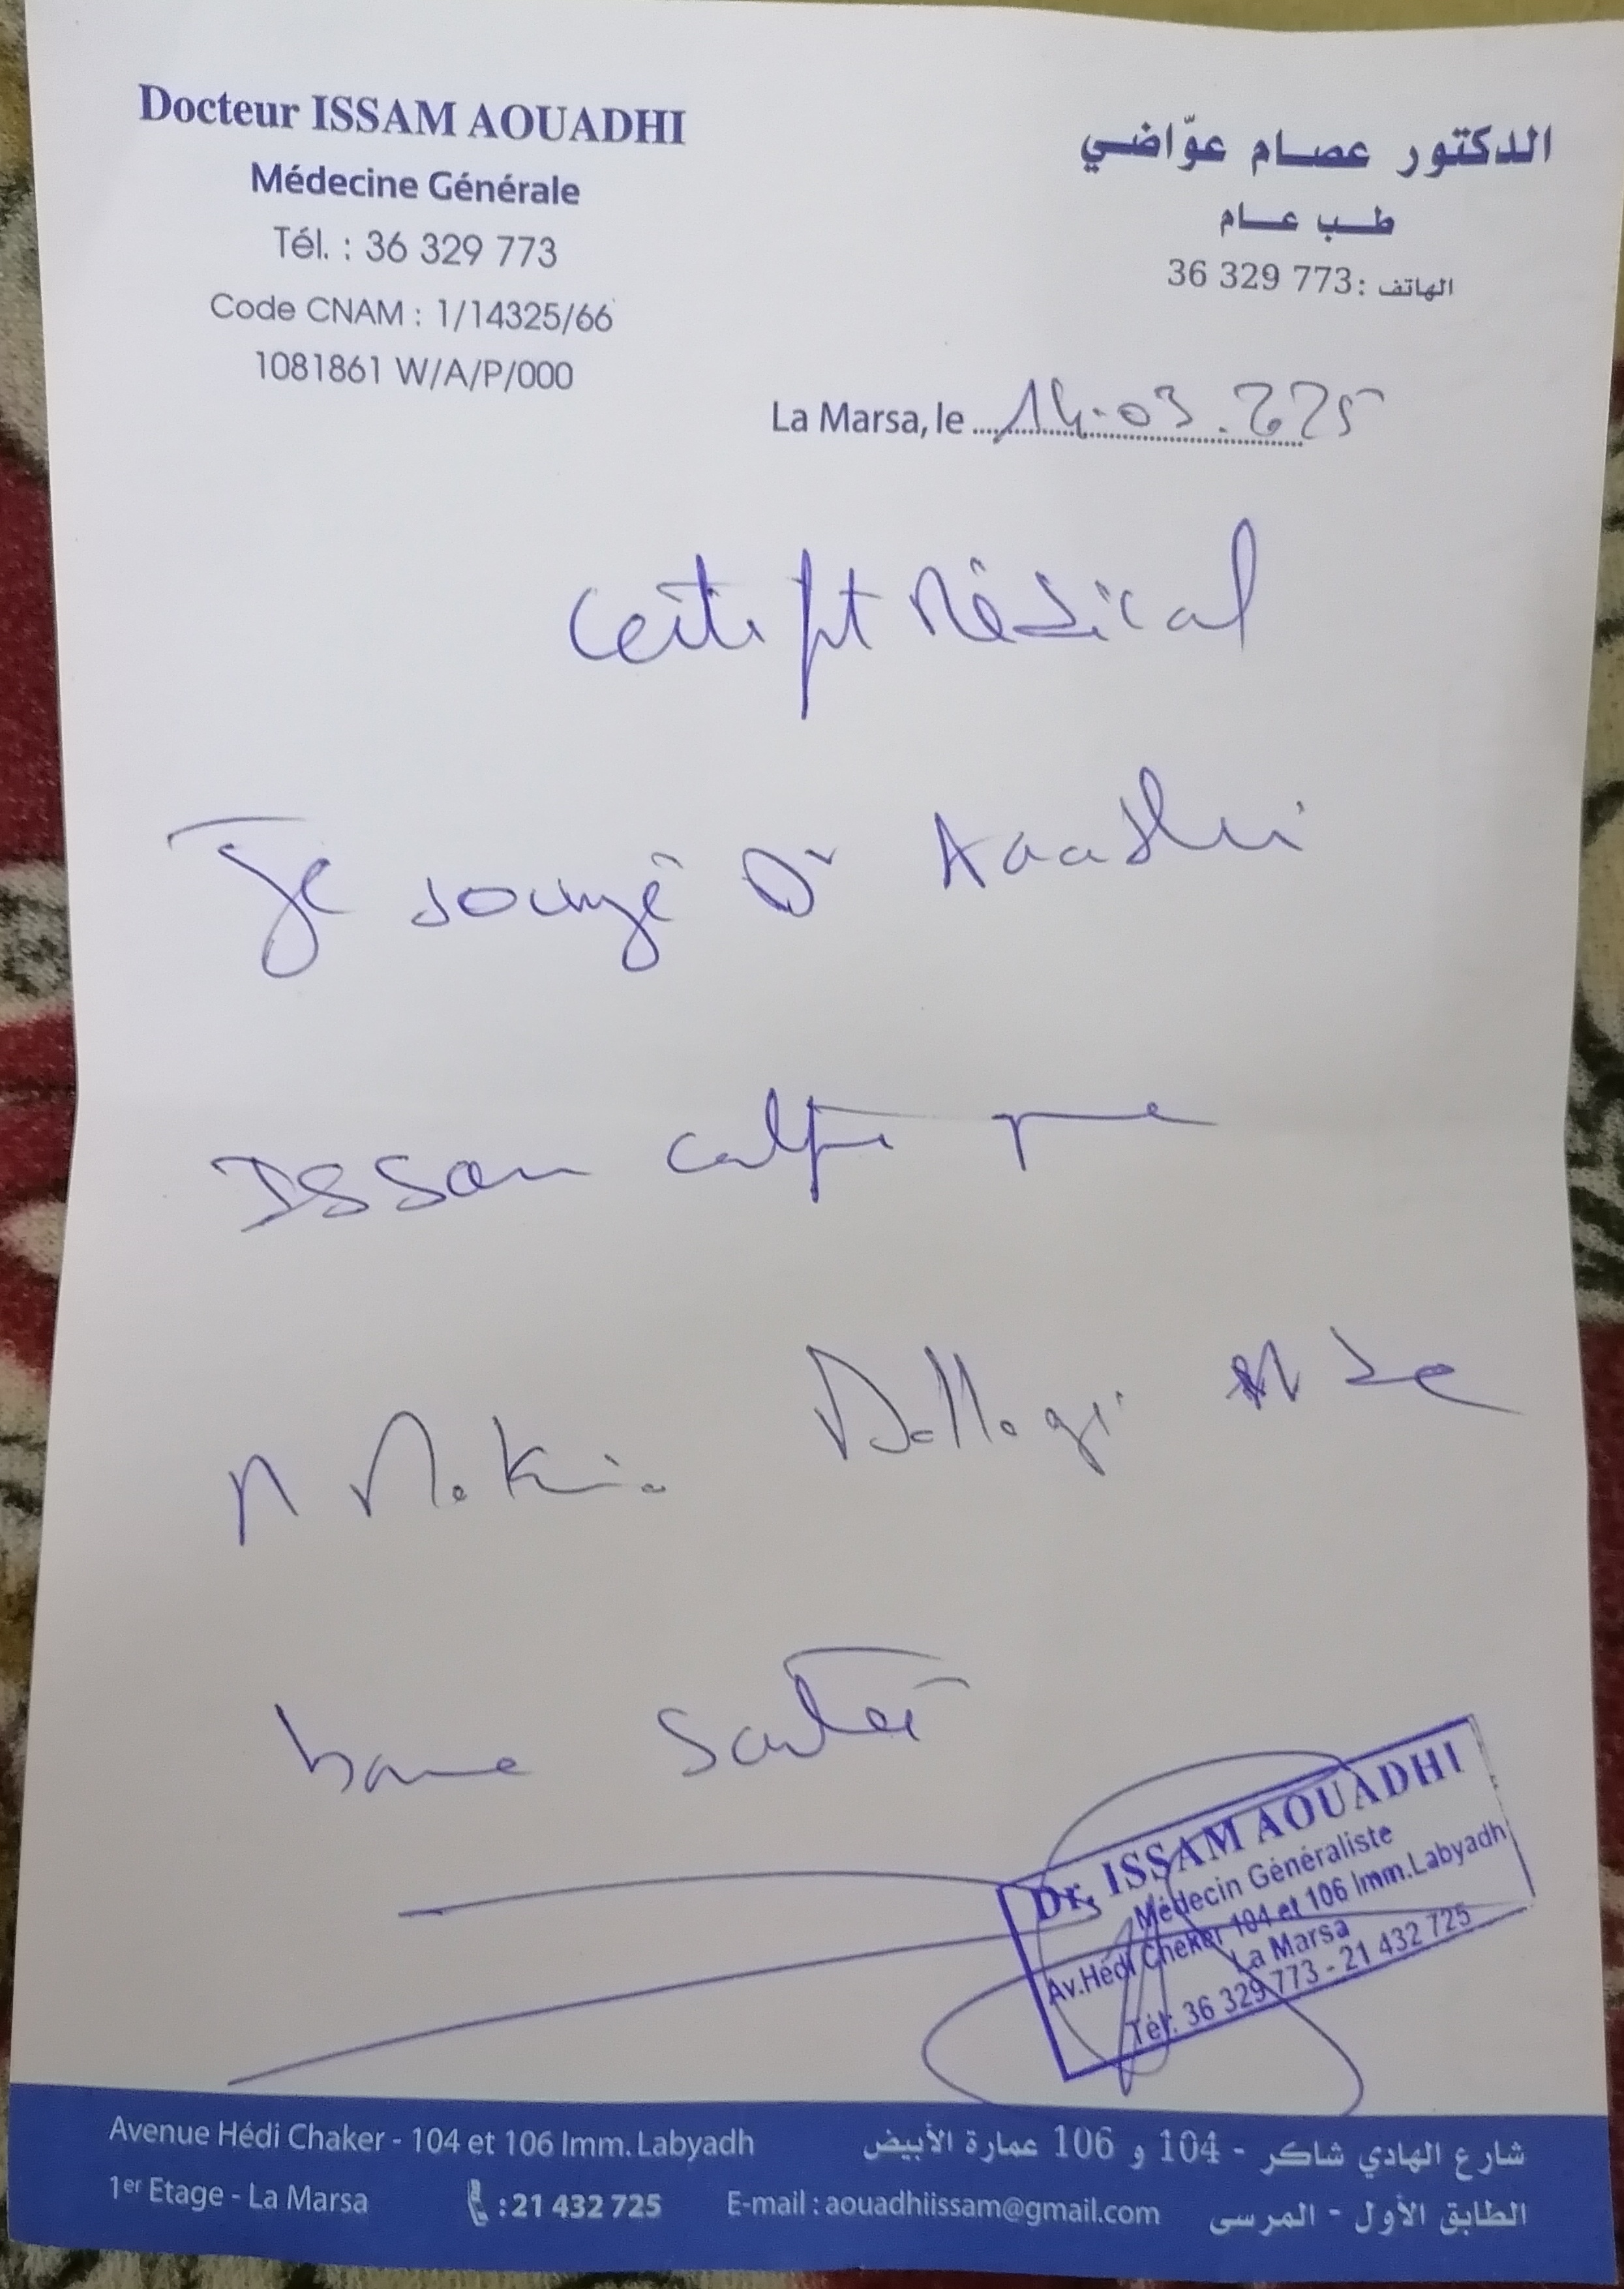 Docteur ISSAM AOUADHI
Médecine Générale
Tél. : 36 329 773
Code CNAM : 1/14325/66
1081861 W/A/P/000
الدكتور عصام عوّاضي
طب عام
الهاتف : 36 329 773
La Marsa, le 14.03.225
Certift Médical
Je sougé Dr Aouadhi
Issam que
M Dellagi de
bonne Santé
Dr. ISSAM AOUADHI
Médecin Généraliste
Av.Hédi Cheker 104 et 106 Imm.Labyadh
La Marsa
Tél: 36 329 773 - 21 432 725
Avenue Hédi Chaker - 104 et 106 Imm. Labyadh
1er Etage - La Marsa : 21 432 725 E-mail : aouadhiissam@gmail.com
شارع الهادي شاكر - 104 و 106 عمارة الأبيض
الطابق الأول - المرسى